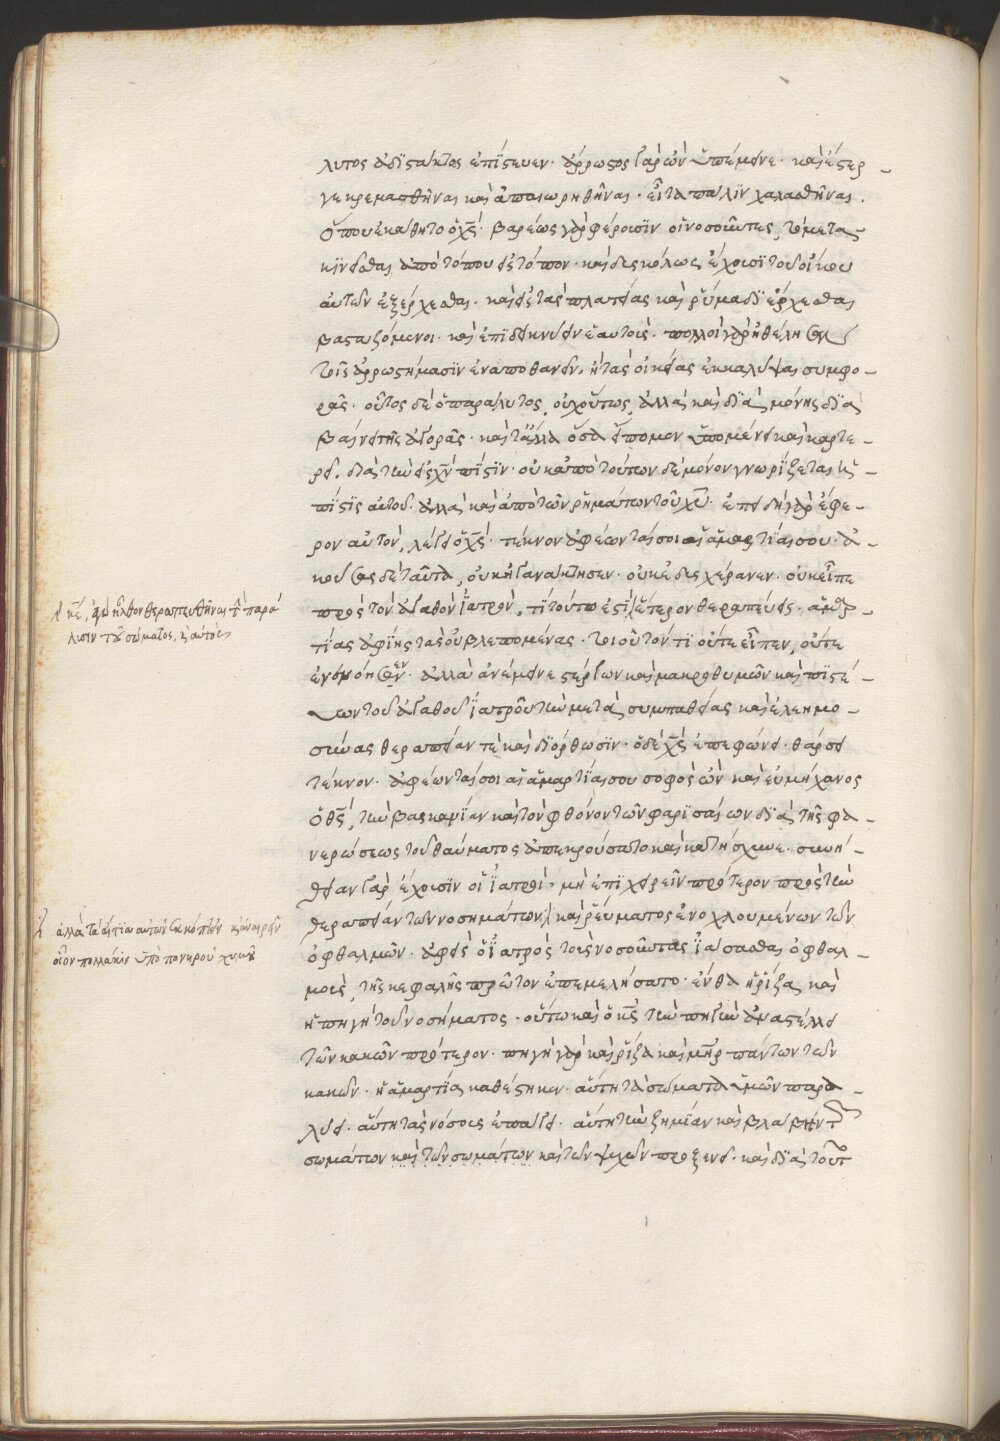 λυτος ἀδϊστάκτως ἐπίστευεν· ἄρρωστος γὰρ ὢν ὑπέμεινε· καὶ ἔστερ-
γε κρεμασθῆναι καὶ ἀπαιωρηθῆναι· εἶτα πάλϊν χαλασθῆναι.
ὅπου ἐκάθητο ὁ χς̅· βαρέως γὰρ φέρουσϊν οἱ νοσοῦντες, τὸ μετα-
κϊνεῖσθαι ἀπὸ τόπου εἰς τόπον· καὶ δυσκόλως ἔχουσϊ τοῦ οἴκου
αὐτῶν ἐξέρχεσθαι· καὶ εἰς τὰς πλατείας καὶ ῥύμας διέρχεσθαι
βασταζόμενοι· καὶ ἐπιδεικνύειν ἑαυτούς· πολλοὶ γὰρ ἠθέλησαν
τοῖς ἀρρωστήμασϊν ἐναποθανεῖν, ἢ τὰς οἰκείας ἐκκαλύψαι συμφο-
ράς· οὗτος δὲ ὁ παράλυτος, οὐχ οὕτως, ἀλλὰ καὶ διὰ μόνης δϊα
βαίνει τῆς ἀγορᾶς· καὶ τἄλλα ὅσα εἴπομεν ὑπομένει καὶ καρτε-
ρεῖ. διὰ τὴν εἰς χν̅ πίστϊν· οὐκ ἀπὸ τούτων δὲ μόνον γνωρίζεται ἡ
πίστϊς αὐτοῦ· ἀλλὰ καὶ ἀπὸ τῶν ῥημάτων τοῦ χυ̅· ἐπειδὴ γὰρ ἔφε-
ρον αὐτὸν, λέγει ὁ χς̅· τέκνον ἀφέωνταί σοι αἱ ἁμαρτίαι σου· ἀ-
κούσας δὲ ταῦτα, οὐκ ἠγανάκτησεν· οὐκ ἐδυσχέρανεν· οὐκ εἶπε
πρὸς τὸν ἀγαθὸν ἰατρόν, τί τοῦτο ἐστϊ; ἕτερον θεραπεύεις· ἁμαρ-
τίας ἀφίης τὰς οὐ βλεπομένας· τοιοῦτόν τϊ οὔτε εἶπεν, οὔτε
ἐνενόησεν· ἀλλὰ ἀνέμεινε στέργων καὶ μακροθυμῶν καὶ πϊστε-
ύων τοῦ ἀγαθοῦ ἰατροῦ τὴν μετὰ συμπαθείας καὶ ἐλεημο-
σύνης θεραπείαν τὲ καὶ δϊόρθωσϊν· ὁ δὲ χς̅ ἐπεφώνει· θάρσει
τέκνον· ἀφέωνταί σοι αἱ ἁμαρτίαι σου σοφὸς ὢν καὶ εὐμήχανος
ὁ θς̅, τὴν βασκανίαν καὶ τὸν φθόνον τῶν φαρϊσαίων δϊὰ τῆς φα-
νερώσεως τοῦ θαύματος ἀπεκρούσατο καὶ κατήσχυνε· συνή-
θειαν γὰρ ἔχουσϊν οἱ ἰατροί· μὴ ἐπϊχειρεῖν πρότερον πρὸς τὴν
θεραπείαν τῶν νοσημάτων· καὶ ῥεύματος ἐνοχλουμένων τῶν
ὀφθαλμῶν· ἀφεὶς ὁ ἰατρὸς τοὺς νοσοῦντας ἰάσασθαι ὀφθαλ-
μοὺς, τῆς κεφαλῆς πρῶτον ἐπεμελήσατο· ἔνθα ἡ ῥίζα καὶ
ἡ πηγὴ τοῦ νοσήματος· οὕτω καὶ ὁ κς̅ τὴν πηγὴν ἀναστέλλει
τῶν κακῶν πρότερον· πηγὴ γὰρ καὶ ῥίζα καὶ μη̅ρ πάντων τῶν
κακῶν· ἡ ἁμαρτία καθέστηκεν· αὕτη τὰ σώματα ἡμῶν παρα-
λύει· αὕτη τὰς νόσους ἐπάγει· αὕτη τὴν ζημίαν καὶ βλάβην τῶν
σωμάτων καὶ τῶν σωμάτων καὶ τῶν ψυχῶν προξενεῖ· καὶ δϊὰ τοῦτο
κε̅, ἐγὼ ἦλθον θεραπευθῆναι τὴν παρά
λυσιν τοῦ σώματος, καὶ αὐτὸς
ἀλλὰ τὰ αἴτια αὐτῶν ἐκκόπτειν
οἷον πολλάκις ὑπὸ πονηροῦ χυμοῦ